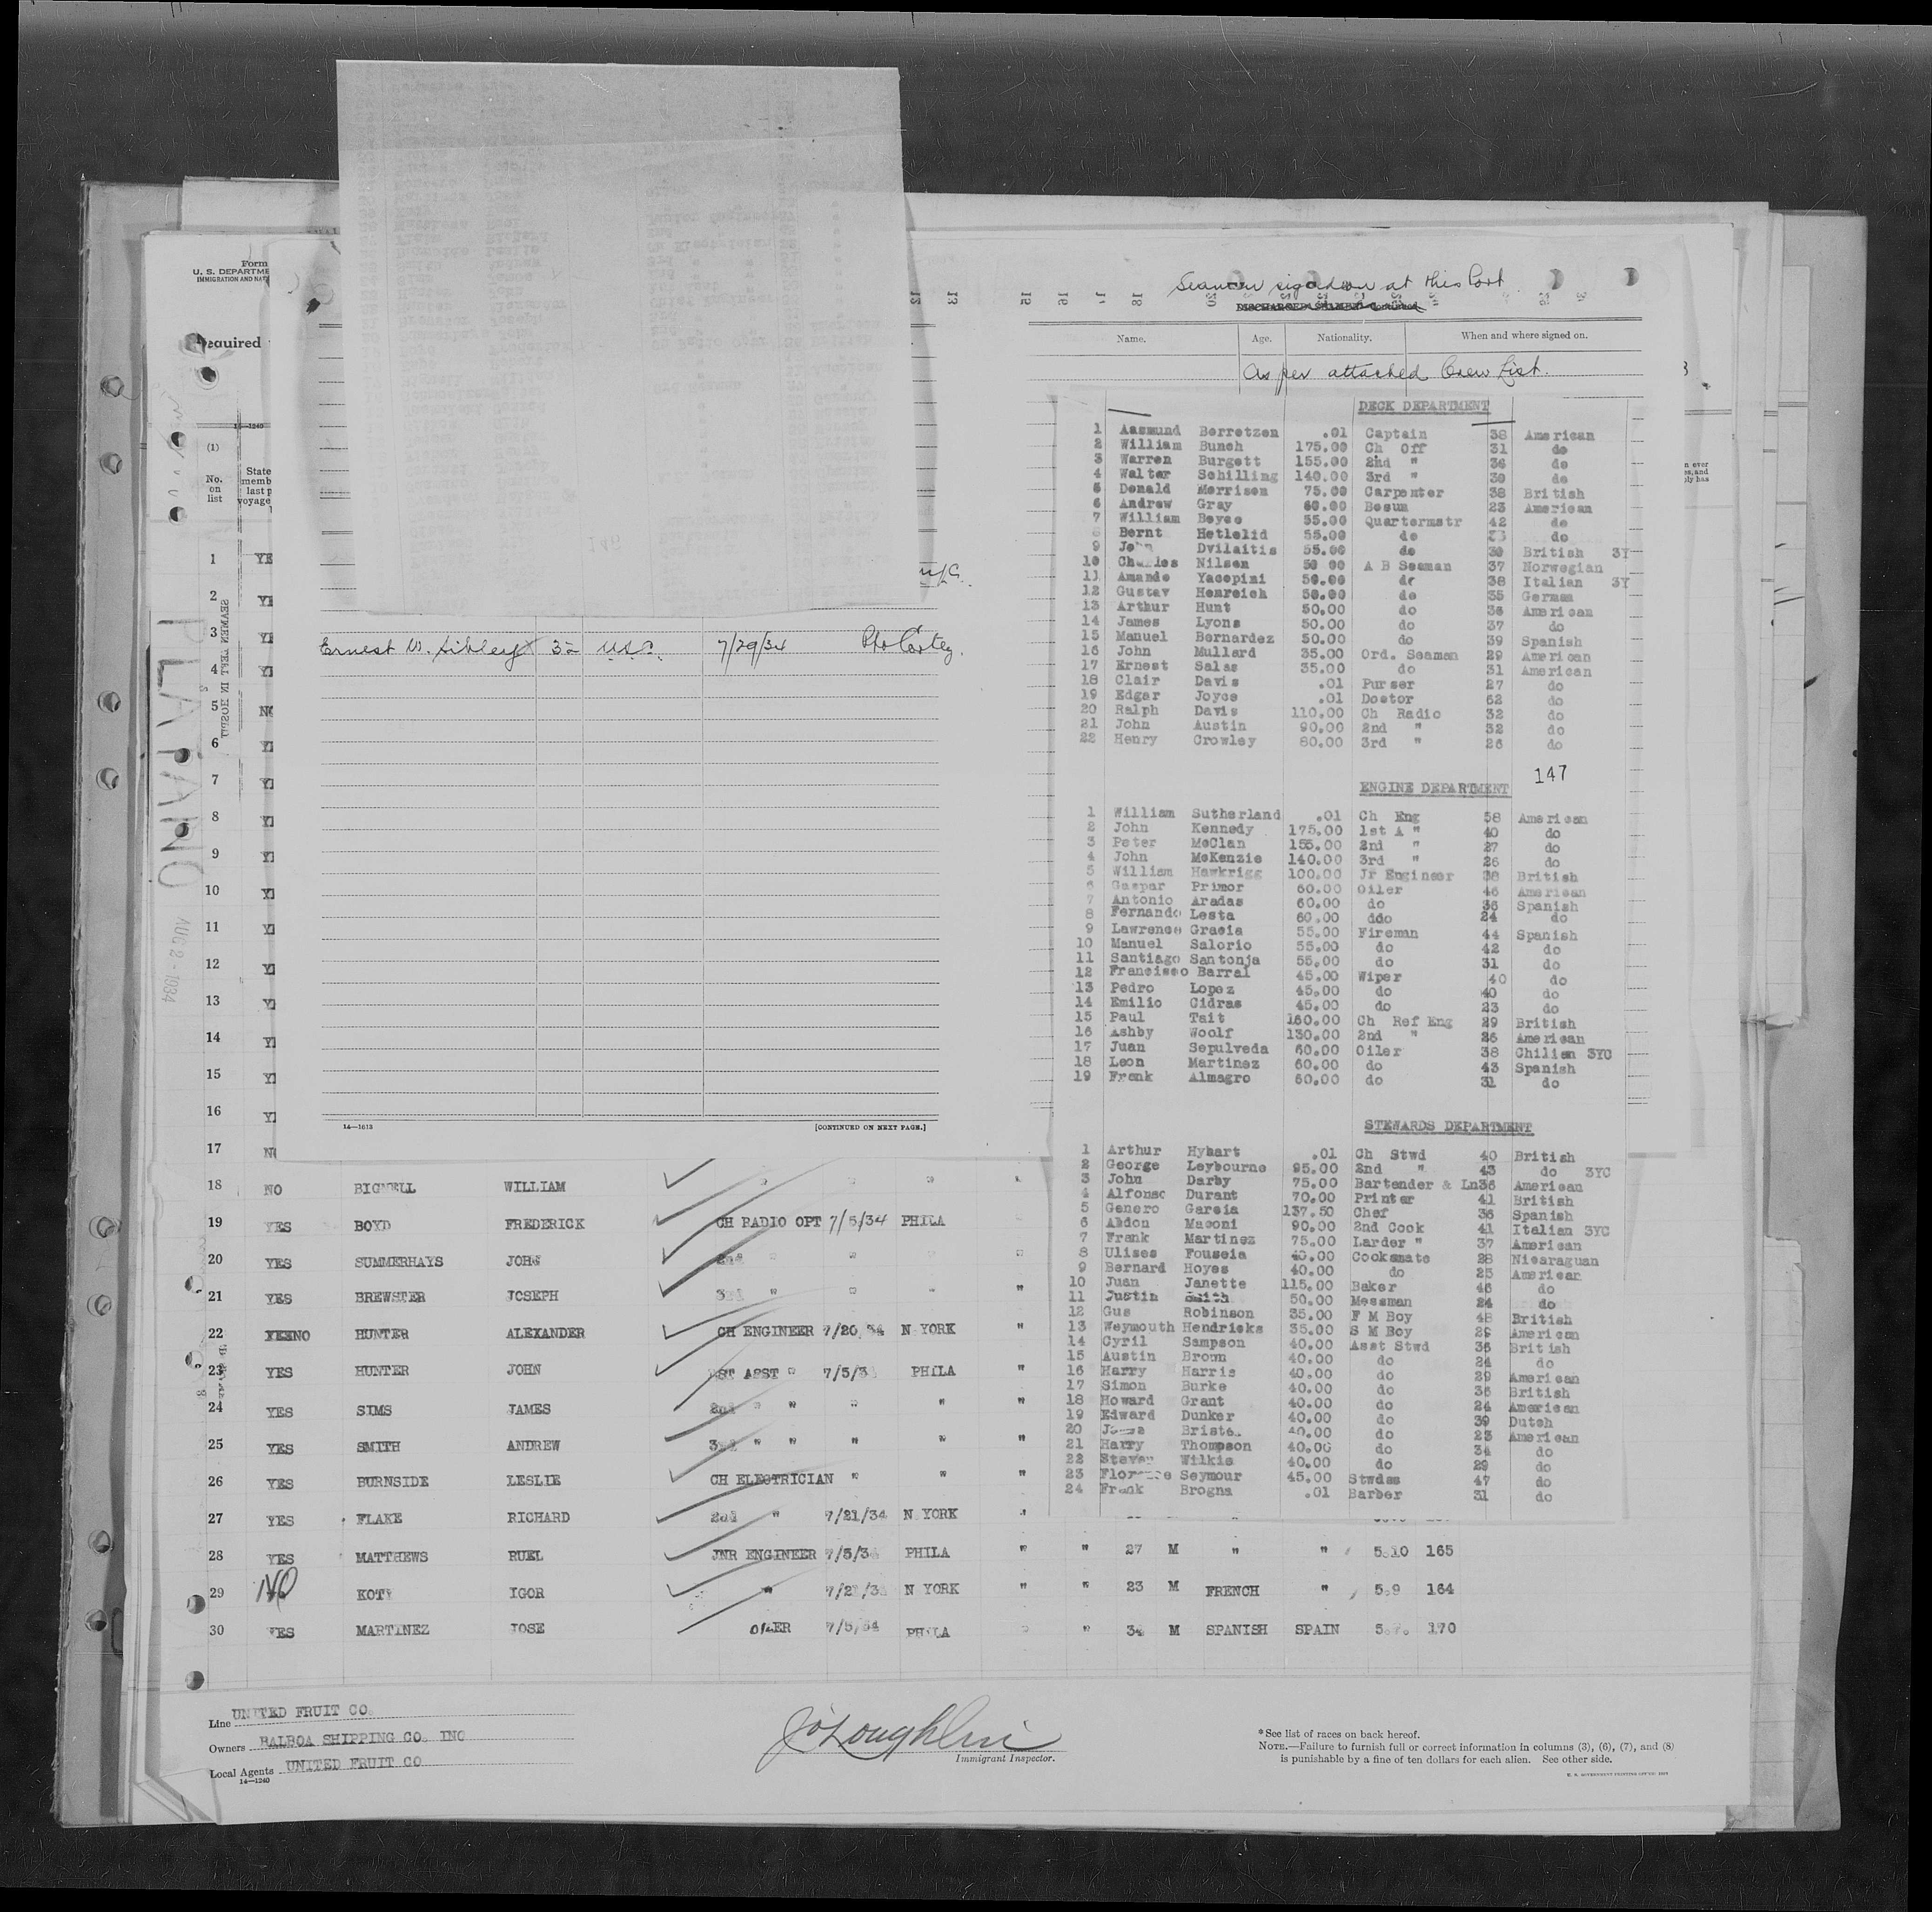 Form
U. S. DEPARTME
IMMIGRATION AND NAT
Required
(1)
No.
on
list
State
memb
last p
voyage
14—1240
SEAMEN LEFT IN HOSPIT
PLATANO
AUG 2 - 1934
Ernest W. Sibley 32 U.S. 7/29/34 Pto Cortez.
14—1613 [CONTINUED ON NEXT PAGE.]
Seamen signed on at this Port
DISCHARGED SEAMEN—Continued
Name. Age. Nationality. When and where signed on.
As per attached Crew List.
DECK DEPARTMENT
1 Aasmund Borretzen .01 Captain 38 American
2 William Bunch 175.00 Ch Off 31 do
3 Warren Burgett 155.00 2nd " 36 do
4 Walter Schilling 140.00 3rd " 30 do
5 Donald Morrison 75.00 Carpenter 38 British
6 Andrew Gray 60.00 Bosun 23 American
7 William Boyce 55.00 Quartermstr 42 do
8 Bernt Hetlelid 55.00 do do
9 John Dvilaitis 55.00 do 30 British 3Y
10 Charles Nilsen 50 00 A B Seaman 37 Norwegian
11 Amando Yacopini 50.00 do 38 Italian 3Y
12 Gustav Henreich 50.00 do 35 German
13 Arthur Hunt 50.00 do 36 American
14 James Lyons 50.00 do 37 do
15 Manuel Bernardez 50.00 do 39 Spanish
16 John Mullard 35.00 Ord. Seaman 29 American
17 Ernest Salas 35.00 do 31 American
18 Clair Davis .01 Purser 27 do
19 Edgar Joyce .01 Doctor 62 do
20 Ralph Davis 110.00 Ch Radio 32 do
21 John Austin 90.00 2nd " 32 do
22 Henry Crowley 80.00 3rd " 26 do
147
ENGINE DEPARTMENT
1 William Sutherland .01 Ch Eng 58 American
2 John Kennedy 175.00 1st A " 40 do
3 Peter McClan 155.00 2nd " 27 do
4 John McKenzie 140.00 3rd " 26 do
5 William Hawkrigg 100.00 Jr Engineer 38 British
6 Gaspar Primor 60.00 Oiler 46 American
7 Antonio Aradas 60.00 do 36 Spanish
8 Fernando Lesta 60.00 ddo 24 do
9 Lawrence Gracia 55.00 Fireman 44 Spanish
10 Manuel Salorio 55.00 do 42 do
11 Santiago Santonja 55.00 do 31 do
12 Francisco Barral 45.00 Wiper 40 do
13 Pedro Lopez 45.00 do 40 do
14 Emilio Cidras 45.00 do 23 do
15 Paul Tait 160.00 Ch Ref Eng 29 British
16 Ashby Woolf 130.00 2nd " 26 American
17 Juan Sepulveda 60.00 Oiler 38 Chilian 3YC
18 Leon Martinez 60.00 do 43 Spanish
19 Frank Almagro 60.00 do 31 do
STEWARDS DEPARTMENT
1 Arthur Hyhart .01 Ch Stwd 40 British
2 George Leybourne 95.00 2nd " 43 do 3YC
3 John Darby 75.00 Bartender & Ln 36 American
4 Alfonso Durant 70.00 Printer 41 British
5 Genero Garcia 137.50 Chef 36 Spanish
6 Abdon Maconi 90.00 2nd Cook 41 Italian 3YC
7 Frank Martinez 75.00 Larder " 37 American
8 Ulises Fouseia 40.00 Cooksmate 28 Nicaraguan
9 Bernard Hoyes 40.00 do 25 American
10 Juan Janette 115.00 Baker 46 do
11 Justin Smith 50.00 Messman 24 do
12 Gus Robinson 35.00 F M Boy 48 British
13 Weymouth Hendricks 35.00 S M Boy 29 American
14 Cyril Sampson 40.00 Asst Stwd 36 British
15 Austin Brown 40.00 do 24 do
16 Harry Harris 40.00 do 29 American
17 Simon Burke 40.00 do 36 British
18 Howard Grant 40.00 do 24 American
19 Edward Dunker 40.00 do 39 Dutch
20 40.00 do 23 American
21 Harry Thompson 40.00 do 34 do
22 Steven Wilkis 40.00 do 29 do
23 Florence Seymour 45.00 Stwdes 47 do
24 Frank Brogna .01 Barber 31 do
1 YE
2 YE
3 YE
4 YE
5 NO
6 YE
7 YE
8 YE
9 YE
10 YE
11 YE
12 YE
13 YE
14 YE
15 YE
16 YE
17 NO
18 NO BIGNELL WILLIAM " " "
19 YES BOYD FREDERICK CH RADIO OPT 7/5/34 PHILA
20 YES SUMMERHAYS JOHN 2nd " "
21 YES BREWSTER JOSEPH 3rd " " " "
22 NO HUNTER ALEXANDER CH ENGINEER 7/20/34 N YORK "
23 YES HUNTER JOHN 1ST ASST " 7/5/34 PHILA "
24 YES SIMS JAMES 2nd " " " " "
25 YES SMITH ANDREW 3rd " " " " "
26 YES BURNSIDE LESLIE CH ELECTRICIAN " " "
27 YES FLAKE RICHARD 2nd " 7/21/34 N YORK "
28 YES MATTHEWS RUEL JNR ENGINEER 7/5/34 PHILA " " 27 M " " 5.10 165
29 NO KOTY IGOR " 7/21/34 N YORK " " 23 M FRENCH " 5.9 164
30 YES MARTINEZ JOSE OILER 7/5/34 PHILA " " 34 M SPANISH SPAIN 170
Line UNITED FRUIT CO.
Owners BALBOA SHIPPING CO. INC
Local Agents UNITED FRUIT CO
14—1240
J O'Loughlin
Immigrant Inspector.
*See list of races on back hereof.
NOTE.—Failure to furnish full or correct information in columns (3), (6), (7), and (8)
is punishable by a fine of ten dollars for each alien. See other side.